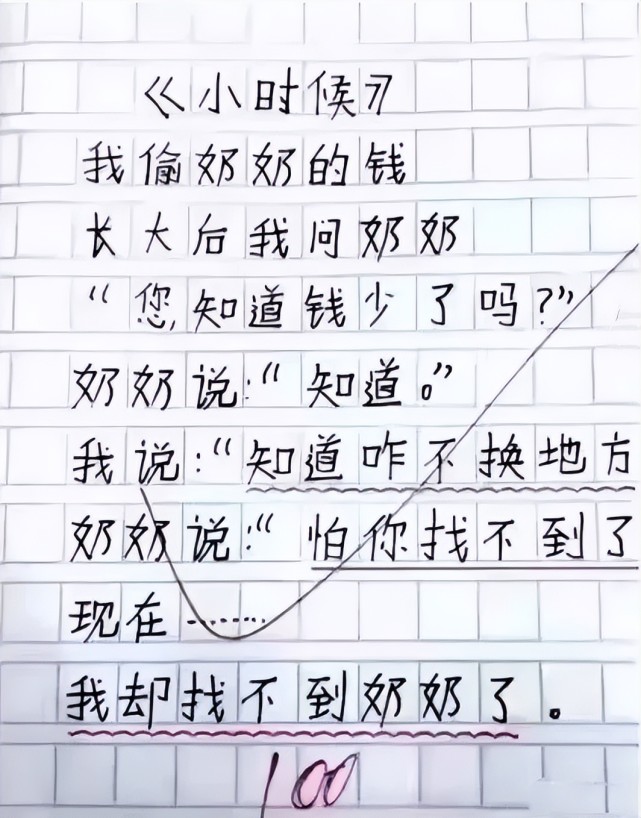 《小时候》
我偷奶奶的钱
长大后我问奶奶
“您知道钱少了吗?”
奶奶说:“知道。”
我说:“知道咋不换地方
奶奶说:“怕你找不到了
现在……
我却找不到奶奶了。
100